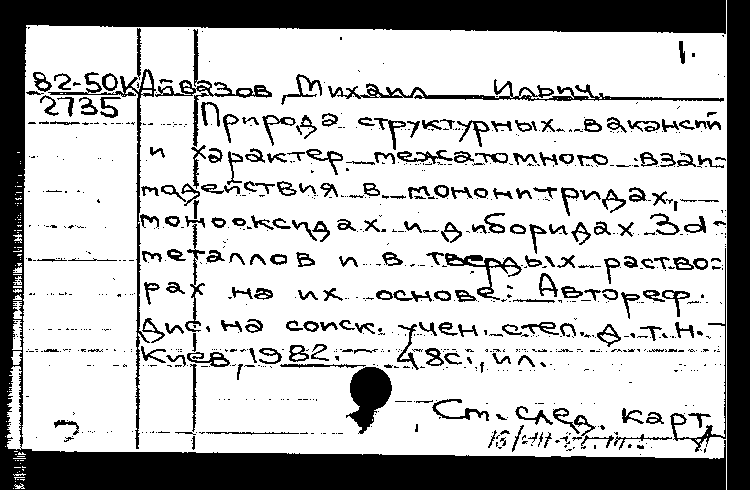 1.
82-50К Айвазов, Михаил Ильич.
2735
Природа структурных вакансий
и характер межатомного взаи-
модействия в мононитридах,
монооксидах и диборидах 3d-
металлов и в твердых раство-
рах на их основе: Автореф.
дис. на соиск. учен. степ. д.т.н. -
Киев, 1982. - 48с., ил.
См. след. карт